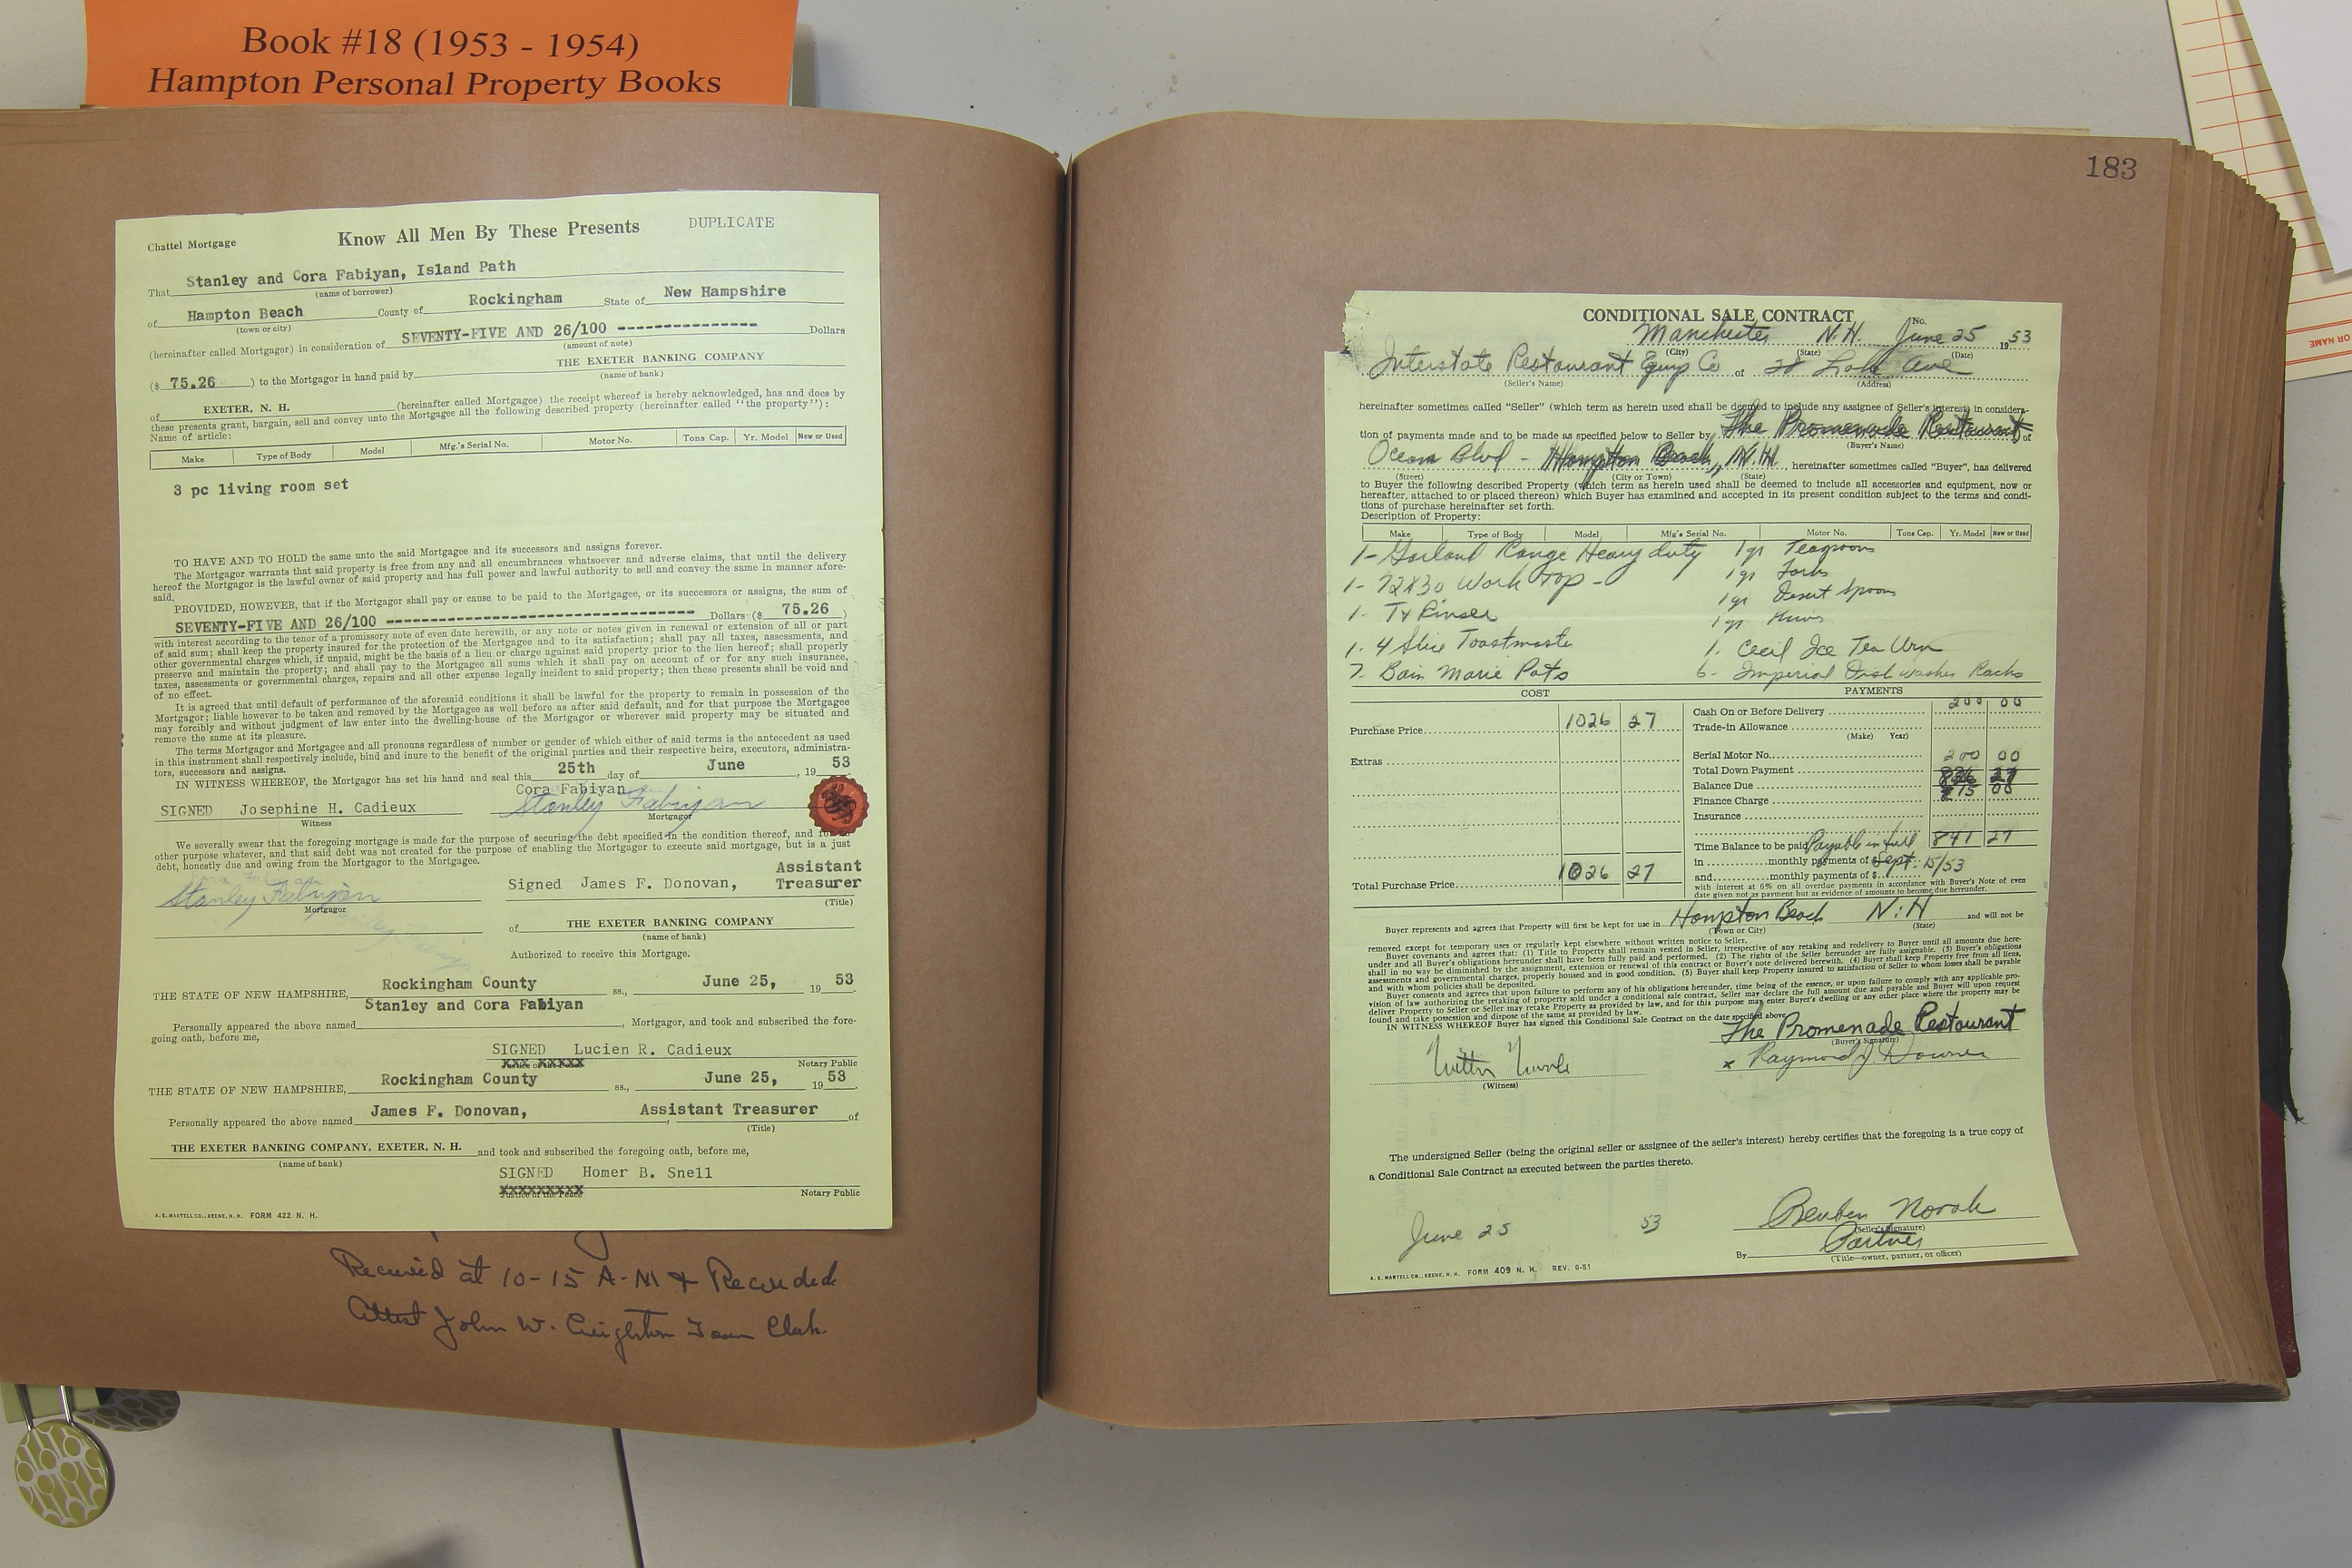 Book #18 (1953 - 1954)
Hampton Personal Property Books
Chattel Mortgage
Know All Men By These Presents
DUPLICATE
That Stanley and Cora Fabiyan, Island Path
(name of borrower)
of Hampton Beach County of Rockingham State of New Hampshire
(town or city)
(hereinafter called Mortgagor) in consideration of SEVENTY-FIVE AND 26/100 --------------- Dollars
(amount of note)
($ 75.26 ) to the Mortgagor in hand paid by THE EXETER BANKING COMPANY
(name of bank)
of EXETER, N. H. (hereinafter called Mortgagee) the receipt whereof is hereby acknowledged, has and does by
these presents grant, bargain, sell and convey unto the Mortgagee all the following described property (hereinafter called "the property"):
Name of article:
Make Type of Body Model Mfg.'s Serial No. Motor No. Tons Cap. Yr. Model New or Used
3 pc living room set
TO HAVE AND TO HOLD the same unto the said Mortgagee and its successors and assigns forever.
The Mortgagor warrants that said property is free from any and all encumbrances whatsoever and adverse claims, that until the delivery
hereof the Mortgagor is the lawful owner of said property and has full power and lawful authority to sell and convey the same in manner afore-
said.
PROVIDED, HOWEVER, that if the Mortgagor shall pay or cause to be paid to the Mortgagee, or its successors or assigns, the sum of
SEVENTY-FIVE AND 26/100 --------------------------------- Dollars ($ 75.26 )
with interest according to the tenor of a promissory note of even date herewith, or any note or notes given in renewal or extension of all or part
of said sum; shall keep the property insured for the protection of the Mortgagee and to its satisfaction; shall pay all taxes, assessments, and
other governmental charges which, if unpaid, might be the basis of a lien or charge against said property prior to the lien hereof; shall properly
preserve and maintain the property; and shall pay to the Mortgagee all sums which it shall pay on account of or for any such insurance,
taxes, assessments or governmental charges, repairs and all other expense legally incident to said property; then these presents shall be void and
of no effect.
It is agreed that until default of performance of the aforesaid conditions it shall be lawful for the property to remain in possession of the
Mortgagor; liable however to be taken and removed by the Mortgagee as well before as after said default, and for that purpose the Mortgagee
may forcibly and without judgment of law enter into the dwelling-house of the Mortgagor or wherever said property may be situated and
remove the same at its pleasure.
The terms Mortgagor and Mortgagee and all pronouns regardless of number or gender of which either of said terms is the antecedent as used
in this instrument shall respectively include, bind and inure to the benefit of the original parties and their respective heirs, executors, administra-
tors, successors and assigns.
IN WITNESS WHEREOF, the Mortgagor has set his hand and seal this 25th day of June , 19 53.
Cora Fabiyan
SIGNED Josephine H. Cadieux Stanley Fabiyan
Witness Mortgagor
We severally swear that the foregoing mortgage is made for the purpose of securing the debt specified in the condition thereof, and for no
other purpose whatever, and that said debt was not created for the purpose of enabling the Mortgagor to execute said mortgage, but is a just
debt, honestly due and owing from the Mortgagor to the Mortgagee.
Cora Fabiyan
Stanley Fabiyan
Mortgagor
Signed James F. Donovan, Assistant Treasurer
(Title)
of THE EXETER BANKING COMPANY
(name of bank)
Authorized to receive this Mortgage.
THE STATE OF NEW HAMPSHIRE, Rockingham County ss., June 25, 19 53.
Stanley and Cora Fabiyan
Personally appeared the above named , Mortgagor, and took and subscribed the fore-
going oath, before me,
SIGNED Lucien R. Cadieux
Notary Public
THE STATE OF NEW HAMPSHIRE, Rockingham County ss., June 25, 19 53
Personally appeared the above named James F. Donovan, , Assistant Treasurer of
(Title)
THE EXETER BANKING COMPANY, EXETER, N. H. and took and subscribed the foregoing oath, before me,
(name of bank)
SIGNED Homer B. Snell
Justice of the Peace Notary Public
A. E. MARTELL CO., KEENE, N. H. FORM 422 N. H.
Received at 10-15 A-M & Recorded
Attest John W. Creighton Town Clerk.
183
CONDITIONAL SALE CONTRACT
No.
Manchester N.H. June 25 19 53
(City) (State) (Date)
Interstate Restaurant Equip Co of 28 Lake Ave
(Seller's Name) (Address)
hereinafter sometimes called "Seller" (which term as herein used shall be deemed to include any assignee of Seller's interest) in considera-
tion of payments made and to be made as specified below to Seller by The Promenade Restaurant of
(Buyer's Name)
Ocean Blvd - Hampton Beach, N.H. , hereinafter sometimes called "Buyer", has delivered
(Street) (City or Town) (State)
to Buyer the following described Property (which term as herein used shall be deemed to include all accessories and equipment, now or
hereafter, attached to or placed thereon) which Buyer has examined and accepted in its present condition subject to the terms and condi-
tions of purchase hereinafter set forth.
Description of Property:
Make Type of Body Model Mfg's Serial No. Motor No. Tons Cap. Yr. Model New or Used
1- Garland Range Heavy duty 1 gr Teaspoons
1- 72x30 Work Top - 1 gr Forks
1 gr Desert Spoons
1- Rinser 1 gr
1. 4 Slice Toastmaster 1. Cecil Ice Tea Urn
7. Bain Marie Pots 6- Imperial Dishwasher Racks
COST PAYMENTS
Purchase Price 1026 27
Cash On or Before Delivery 200 00
Trade-in Allowance
(Make) Year)
Extras
Serial Motor No. 200 00
Total Down Payment 826 27
Balance Due 15 00
Finance Charge
Insurance
Time Balance to be paid Payable in full 841 27
in monthly payments of Sept. 15/53
and monthly payments of $
Total Purchase Price 1026 27
with interest at 6% on all overdue payments in accordance with Buyer's Note of even
date given not as payment but as evidence of amounts to become due hereunder.
Buyer represents and agrees that Property will first be kept for use in Hampton Beach N.H and will not be
(Town or City) (State)
removed except for temporary uses or regularly kept elsewhere without written notice to Seller.
Buyer covenants and agrees that: (1) Title to Property shall remain vested in Seller, irrespective of any retaking and redelivery to Buyer until all amounts due here-
under and all Buyer's obligations hereunder shall have been fully paid and performed. (2) The rights of the Seller hereunder are fully assignable. (3) Buyer's obligations
shall in no way be diminished by the assignment, extension or renewal of this contract or Buyer's note delivered herewith. (4) Buyer shall keep Property free from all liens,
assessments and governmental charges, properly housed and in good condition. (5) Buyer shall keep Property insured to satisfaction of Seller to whom losses shall be payable
and with whom policies shall be deposited.
Buyer consents and agrees that upon failure to perform any of his obligations hereunder, time being of the essence, or upon failure to comply with any applicable pro-
vision of law authorizing the retaking of property sold under a conditional sale contract, Seller may declare the full amount due and payable and Buyer will upon request
deliver Property to Seller or Seller may retake Property as provided by law, and for this purpose may enter Buyer's dwelling or any other place where the property may be
found and take possession and dispose of the same as provided by law.
IN WITNESS WHEREOF Buyer has signed this Conditional Sale Contract on the date specified above.
The Promenade Restaurant
(Buyer's Signature)
x Raymond J
(Witness)
The undersigned Seller (being the original seller or assignee of the seller's interest) hereby certifies that the foregoing is a true copy of
a Conditional Sale Contract as executed between the parties thereto.
Reuben Novak
(Seller's Signature)
June 25 53
By Partner
(Title—owner, partner, or officer)
A. E. MARTELL CO., KEENE, N. H. FORM 409 N. H. REV. 6-51
OR NAME